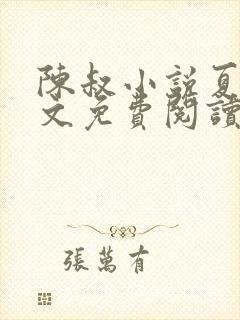 陳叔小説夏
文免費閱讀
張萬有